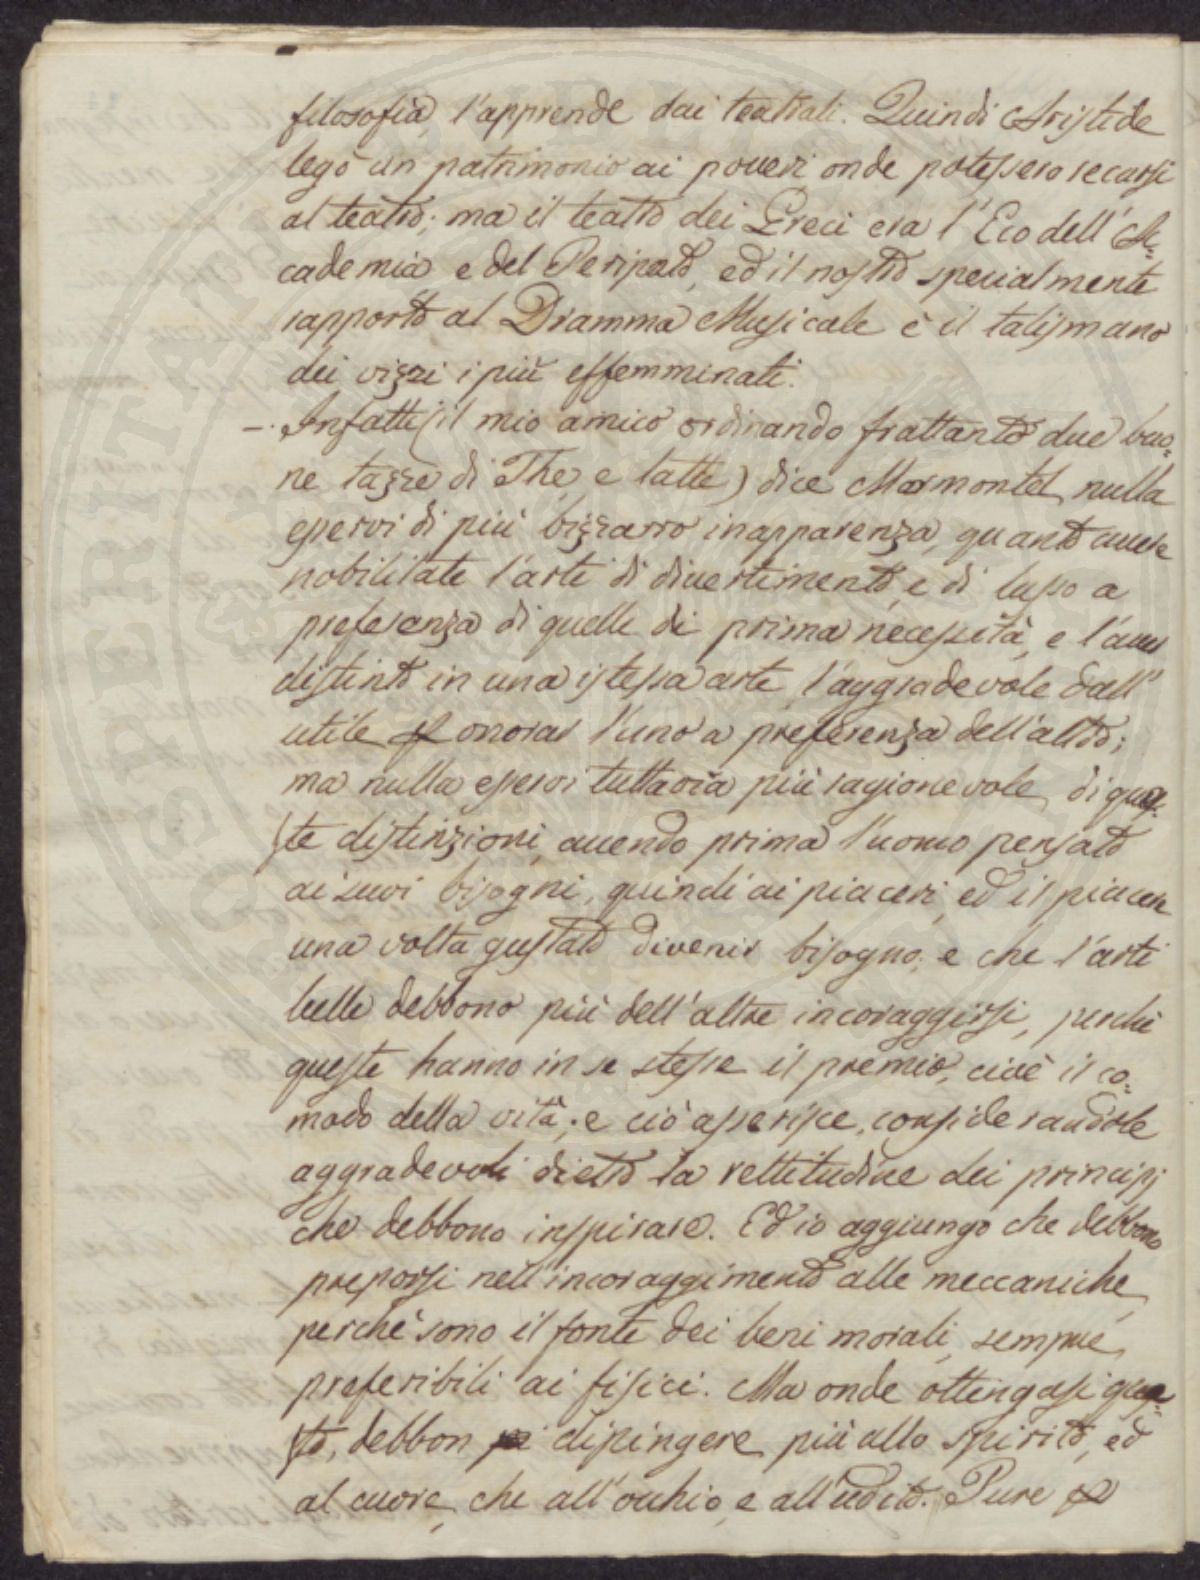 filosofia, l'apprende dai teatrali. Quindi Aristide
legò un patrimonio ai poveri onde potessero recarsi
al teatro; ma il teatro dei Greci era l'Eco dell'Ac=
cademia e del Peripato, ed il nostro specialmente
rapporto al Dramma Musicale è il talismano
dei vizzi i più effemminati.
–. Infatti (il mio amico ordinando frattanto due buo=
ne tazze di The, e latte) dice Marmontel, nulla
esservi di più bizzarro in apparenza, quanto avere
nobilitate l'arti di divertimento, e di lusso a
preferenza di quelle di prima necessità, e l'aver
distinto in una istessa arte, l'aggradevole dall'
utile onorar l'uno a preferenza dell'altro;
ma nulla esservi tuttavia più ragionevole, di ques=
ste distinzioni, avendo prima l'uomo pensato
ai suoi bisogni, quindi ai piaceri, ed il piacere
una volta gustato divenir bisogno; e che l'arti
belle debbono più dell'altre incoraggirsi, perchè
queste hanno in se stesse il premio, cioè il co=
modo della vita; e ciò asserisce, considerandole
aggradevoli dietro la rettitudine dei principj
che debbono inspirare. Ed io aggiungo che debbono
preporsi nell'incoraggimento alle meccaniche,
perchè sono il fonte dei beni morali, sempre
preferibili ai fisici. Ma onde ottengasi ques=
sto, debbon dipingere più allo spirito, ed
al cuore, che all'occhio, e all'udito. Pure